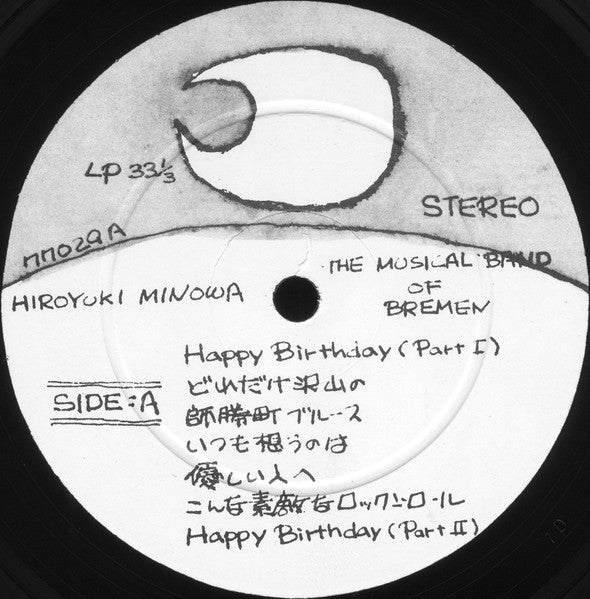 LP 33⅓
STEREO
MM029A
HIROYUKI MINOWA
THE MUSICAL BAND
OF
BREMEN
SIDE:A
Happy Birthday (Part I)
どれだけ沢山の
師勝町ブルース
いつも想うのは
優しい人へ
こんな素敵なロックンロール
Happy Birthday (Part II)